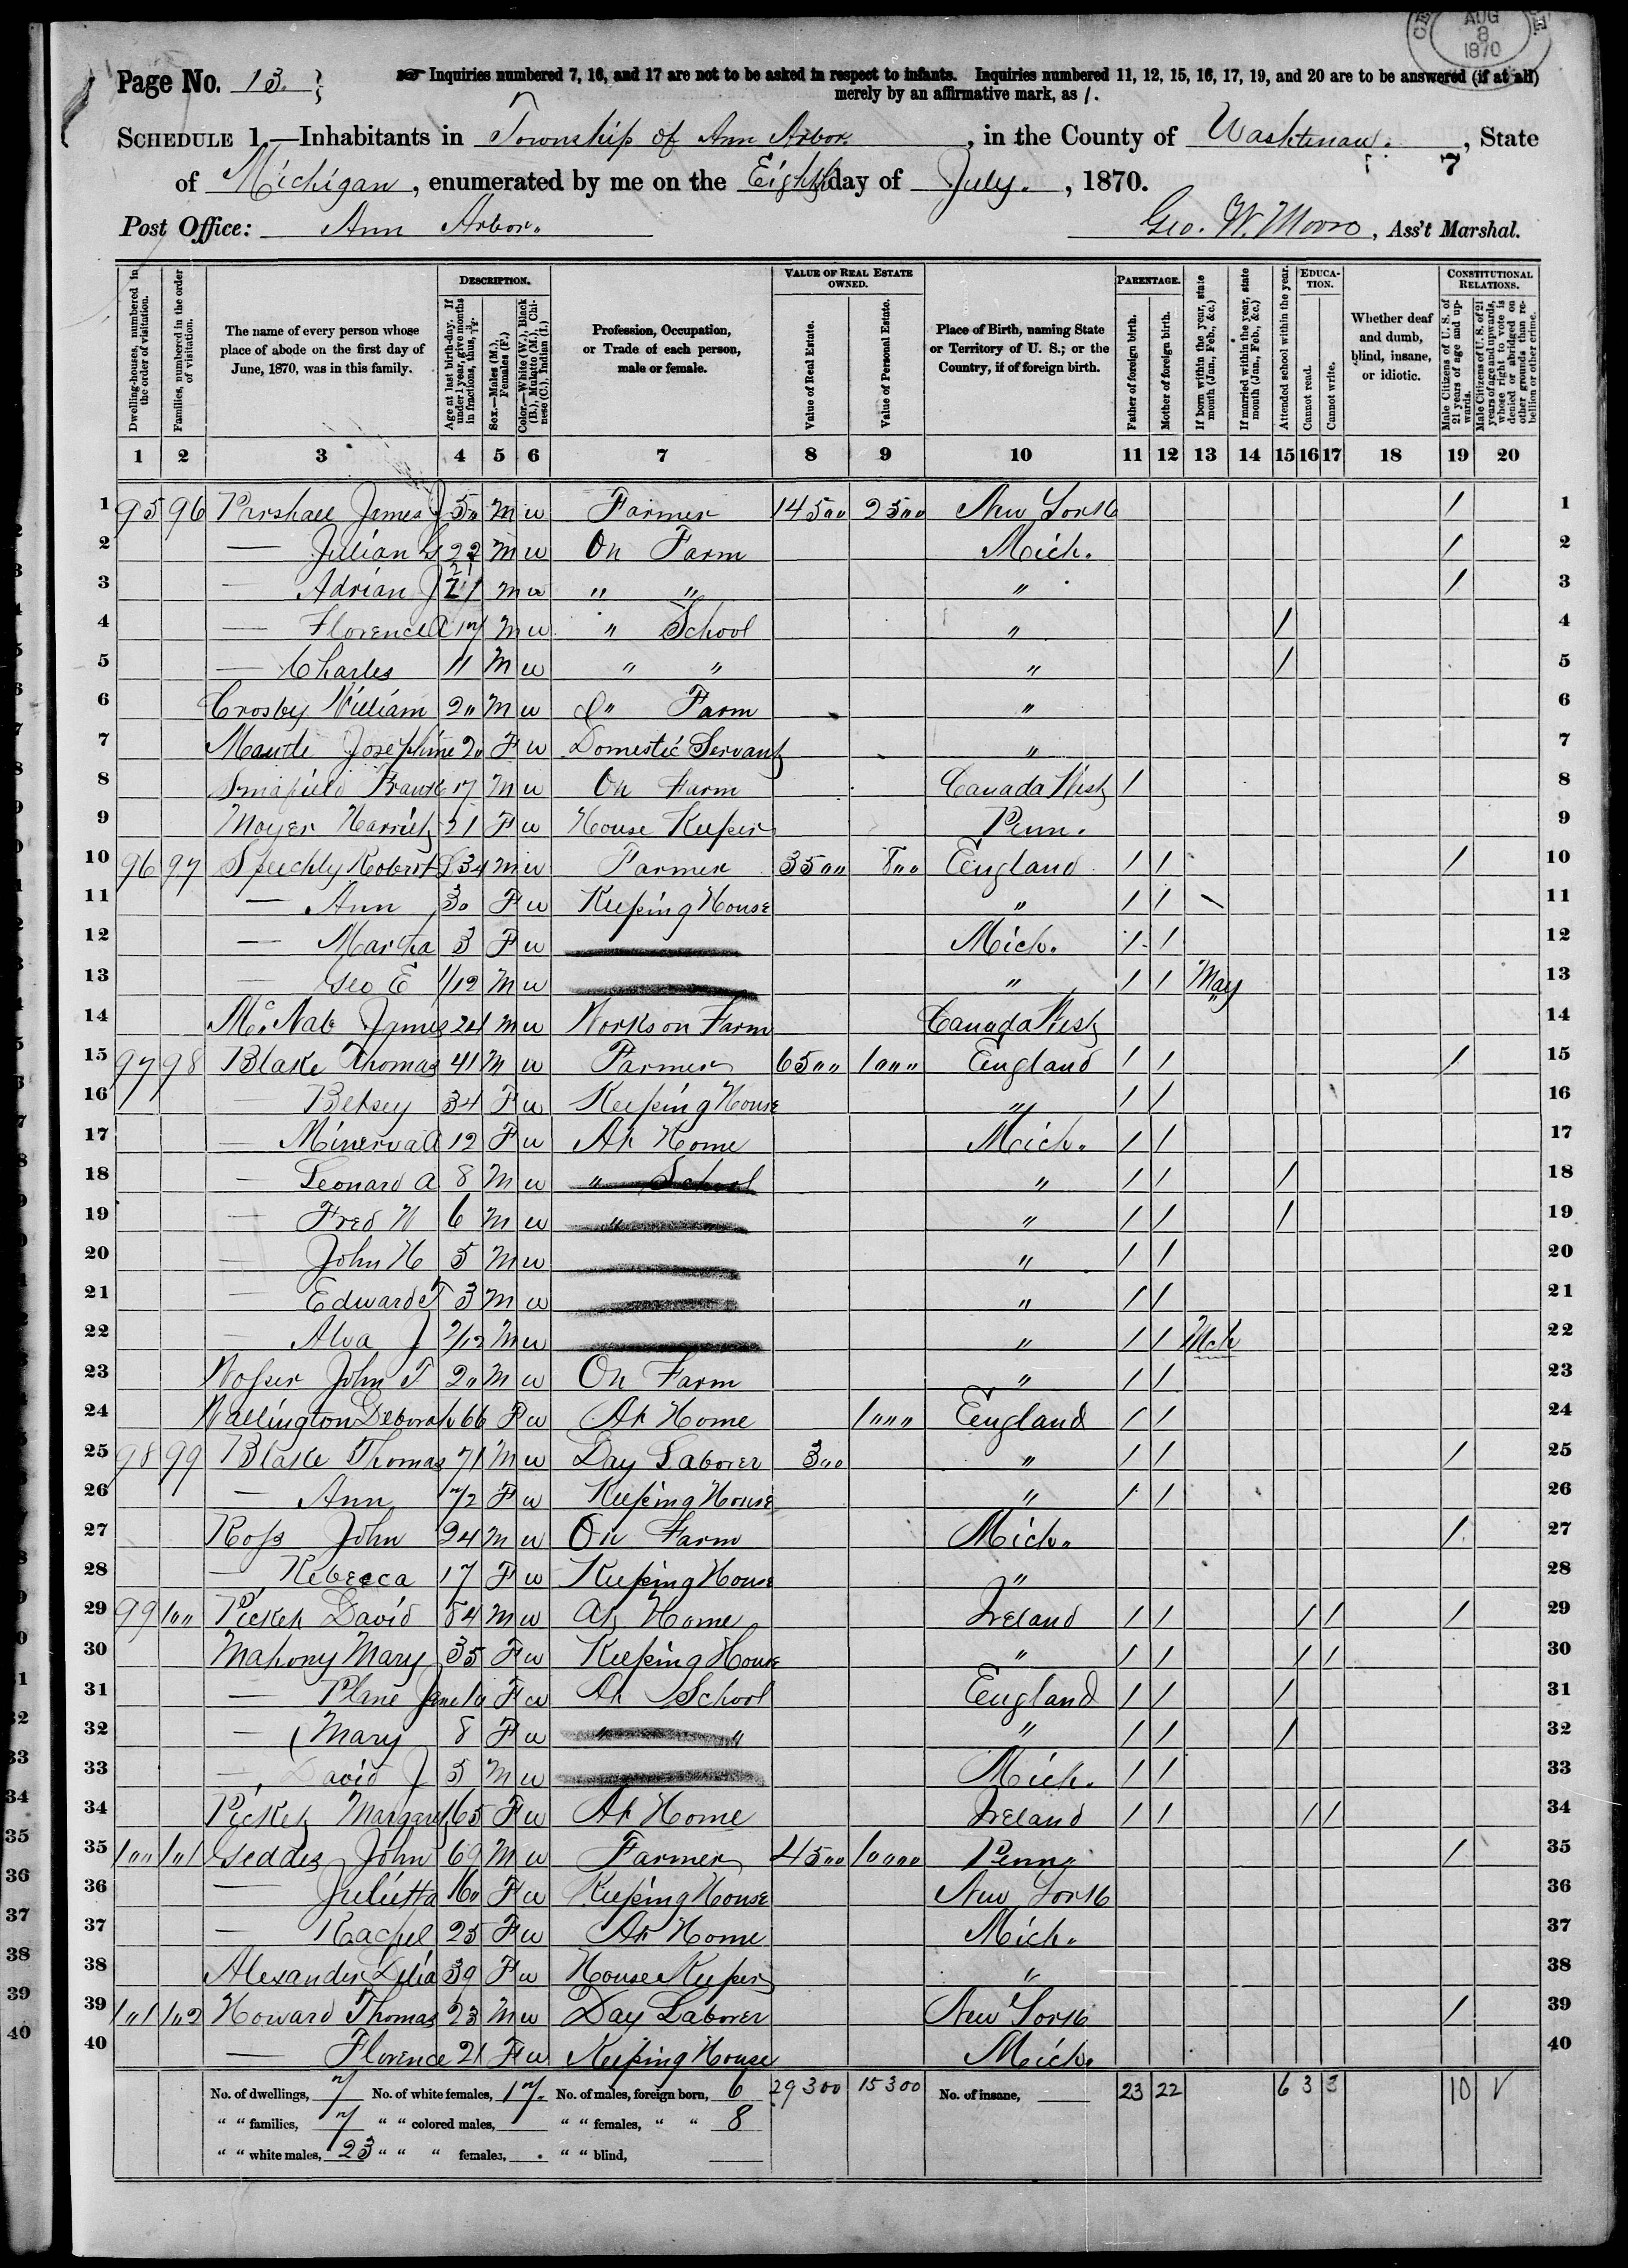 AUG
8
1870
Page No. 13.
☞ Inquiries numbered 7, 16, and 17 are not to be asked in respect to infants. Inquiries numbered 11, 12, 15, 16, 17, 19, and 20 are to be answered (if at all)
merely by an affirmative mark, as /.
SCHEDULE 1.—Inhabitants in Township of Ann Arbor, in the County of Washtenaw, State
of Michigan, enumerated by me on the Eighth day of July, 1870.
7
Post Office: Ann Arbor.
Geo. W. Moore, Ass't Marshal.
Dwelling-houses, numbered in the order of visitation.
Families, numbered in the order of visitation.
The name of every person whose place of abode on the first day of June, 1870, was in this family.
DESCRIPTION.
Age at last birth-day. If under 1 year, give months in fractions, thus, 3/12.
Sex.—Males (M.), Females (F.)
Color.—White (W.), Black (B.), Mulatto (M.), Chinese (C.), Indian (I.)
Profession, Occupation, or Trade of each person, male or female.
VALUE OF REAL ESTATE OWNED.
Value of Real Estate.
Value of Personal Estate.
Place of Birth, naming State or Territory of U. S.; or the Country, if of foreign birth.
PARENTAGE.
Father of foreign birth.
Mother of foreign birth.
If born within the year, state month (Jan., Feb., &c.)
If married within the year, state month (Jan., Feb., &c.)
EDUCATION.
Attended school within the year.
Cannot read.
Cannot write.
Whether deaf and dumb, blind, insane, or idiotic.
CONSTITUTIONAL RELATIONS.
Male Citizens of U. S. of 21 years of age and upwards.
Male Citizens of U. S. of 21 years of age and upwards, whose right to vote is denied or abridged on other grounds than rebellion or other crime.
1 2 3 4 5 6 7 8 9 10 11 12 13 14 15 16 17 18 19 20
1 95 96 Parshall James J 50 M W Farmer 14500 2500 New York / 1
2 — Julian S 22 M W On Farm Mich. / 2
3 — Adrian J 21 21 M W " " " / 3
4 — Florence A 17 M W " School " / 4
5 — Charles 11 M W " " " / 5
6 Crosby William 20 M W On Farm " 6
7 Josephine 20 F W Domestic Servant " 7
8 Frank 17 M W On Farm Canada West / 8
9 Moyer Harriet 21 F W House Keeper Penn. 9
10 96 97 Speechly Robert S 34 M W Farmer 3500 800 England / / / 10
11 — Ann 30 F W Keeping House " / / 11
12 — Martha 3 F W Mich. / / 12
13 — Geo E 1/12 M W " / / May 13
14 McNab James 24 M W Works on Farm Canada West 14
15 97 98 Blake Thomas 41 M W Farmer 6500 1000 England / / / 15
16 — Betsey 34 F W Keeping House " / / 16
17 — Minerva A 12 F W At Home Mich. / / 17
18 — Leonard A 8 M W " School " / / / 18
19 — Fred W 6 M W " " / / / 19
20 — John H 5 M W " / / 20
21 — Edward T 3 M W " / / 21
22 — Alva J /12 M W " / / Mch 22
23 John T 20 M W On Farm " / / 23
24 Wallington Deborah 66 F W At Home 1000 England / / 24
25 98 99 Blake Thomas 71 M W Day Laborer 300 " / / / 25
26 — Ann 72 F W Keeping House " / / 26
27 Ross John 24 M W On Farm Mich. / 27
28 — Rebecca 17 F W Keeping House " 28
29 99 100 Picket David 84 M W At Home Ireland / / / / / 29
30 Mahony Mary 35 F W Keeping House " / / / / 30
31 — Jane 10 F W At School England / / / 31
32 — Mary 8 F W " " " / / / 32
33 — David J 5 M W Mich. / / 33
34 Picket Margaret 65 F W At Home Ireland / / / / 34
35 100 101 Geddes John 69 M W Farmer 4500 10000 Penn. / 35
36 — Julietta 60 F W Keeping House New York 36
37 — Rachel 25 F W At Home Mich. 37
38 Alexander Delia 39 F W House Keeper " 38
39 101 102 Howard Thomas 23 M W Day Laborer New York / 39
40 — Florence 21 F W Keeping House Mich. 40
No. of dwellings, 7 No. of white females, 17. No. of males, foreign born, 6 29300 15300 No. of insane, 23 22 6 3 3 10 V
" " families, 7 " " colored males, " " females, " " 8
" " white males, 23 " " " females, " " blind,